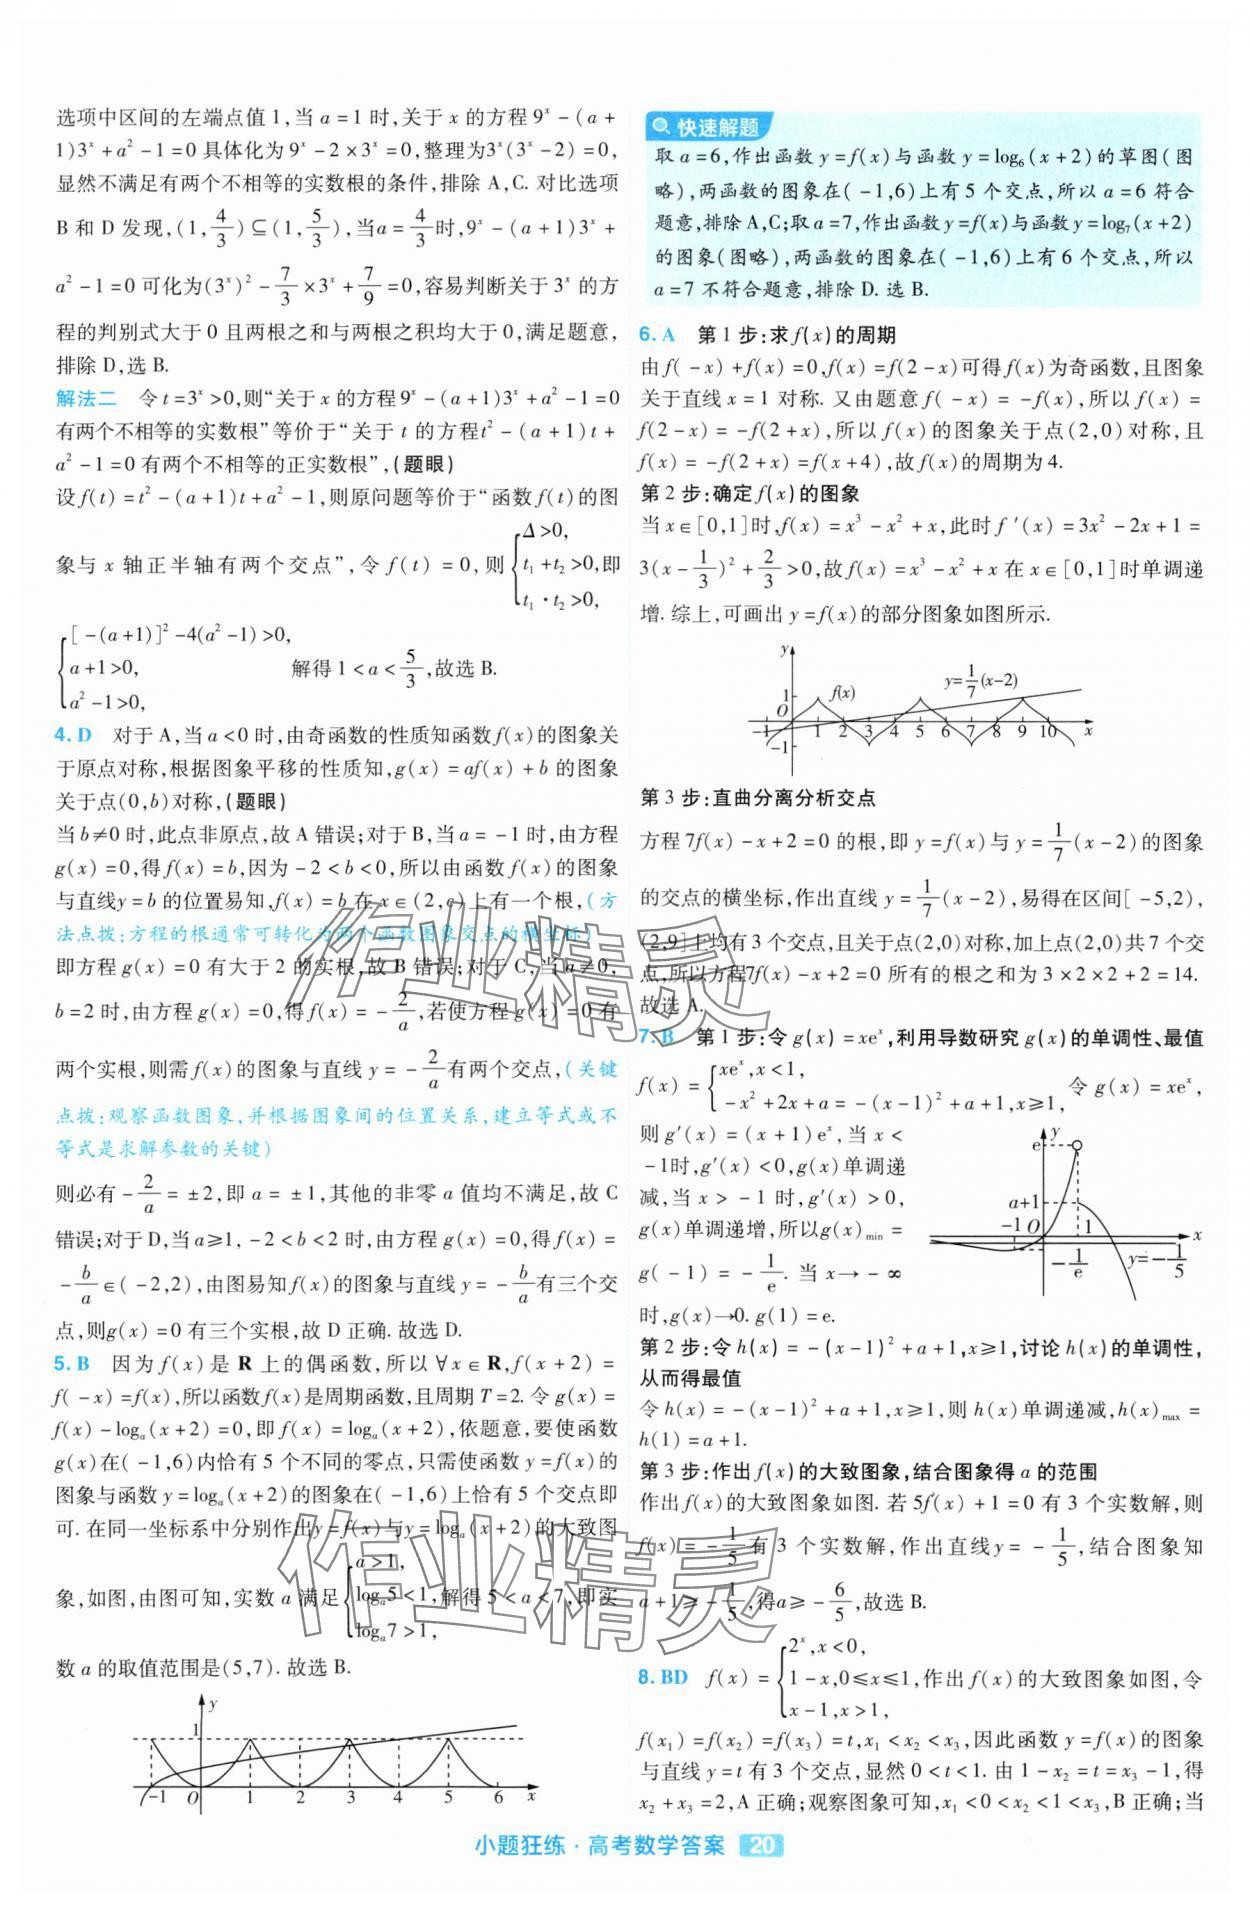 选项中区间的左端点值1,当a=1时,关于x的方程9ˣ-(a+
1)3ˣ+a²-1=0具体化为9ˣ-2×3ˣ=0,整理为3ˣ(3ˣ-2)=0,
显然不满足有两个不相等的实数根的条件,排除A,C.对比选项
B和D发现,(1,4/3)⊆(1,5/3),当a=4/3时,9ˣ-(a+1)3ˣ+
a²-1=0可化为(3ˣ)²-7/3×3ˣ+7/9=0,容易判断关于3ˣ的方
程的判别式大于0且两根之和与两根之积均大于0,满足题意,
排除D,选B.
解法二 令t=3ˣ>0,则“关于x的方程9ˣ-(a+1)3ˣ+a²-1=0
有两个不相等的实数根”等价于“关于t的方程t²-(a+1)t+
a²-1=0有两个不相等的正实数根”,(题眼)
设f(t)=t²-(a+1)t+a²-1,则原问题等价于“函数f(t)的图
象与x轴正半轴有两个交点”,令f(t)=0,则{Δ>0, t₁+t₂>0, t₁·t₂>0,即
{[-(a+1)]²-4(a²-1)>0, a+1>0, a²-1>0, 解得1<a<5/3,故选B.
4. D 对于A,当a<0时,由奇函数的性质知函数f(x)的图象关
于原点对称,根据图象平移的性质知,g(x)=af(x)+b的图象
关于点(0,b)对称,(题眼)
当b≠0时,此点非原点,故A错误;对于B,当a=-1时,由方程
g(x)=0,得f(x)=b,因为-2<b<0,所以由函数f(x)的图象
与直线y=b的位置易知,f(x)=b在x∈(2,c)上有一个根,(方
法点拨:方程的根通常可转化为两个函数图象交点的横坐标)
即方程g(x)=0有大于2的实根,故B错误;对于C,当a≠0,
b=2时,由方程g(x)=0,得f(x)=-2/a,若使方程g(x)=0有
两个实根,则需f(x)的图象与直线y=-2/a有两个交点,(关键
点拨:观察函数图象,并根据图象间的位置关系,建立等式或不
等式是求解参数的关键)
则必有-2/a=±2,即a=±1,其他的非零a值均不满足,故C
错误;对于D,当a≥1,-2<b<2时,由方程g(x)=0,得f(x)=
-b/a∈(-2,2),由图易知f(x)的图象与直线y=-b/a有三个交
点,则g(x)=0有三个实根,故D正确.故选D.
5. B 因为f(x)是R上的偶函数,所以∀x∈R,f(x+2)=
f(-x)=f(x),所以函数f(x)是周期函数,且周期T=2.令g(x)=
f(x)-logₐ(x+2)=0,即f(x)=logₐ(x+2),依题意,要使函数
g(x)在(-1,6)内恰有5个不同的零点,只需使函数y=f(x)的
图象与函数y=logₐ(x+2)的图象在(-1,6)上恰有5个交点即
可.在同一坐标系中分别作出y=f(x)与y=logₐ(x+2)的大致图
象,如图,由图可知,实数a满足{a>1, logₐ5<1, logₐ7>1,解得5<a<7,即实
数a的取值范围是(5,7).故选B.
y
1
-1 O 1 2 3 4 5 6 x
快速解题
取a=6,作出函数y=f(x)与函数y=log₆(x+2)的草图(图
略),两函数的图象在(-1,6)上有5个交点,所以a=6符合
题意,排除A,C;取a=7,作出函数y=f(x)与函数y=log₇(x+2)
的图象(图略),两函数的图象在(-1,6)上有6个交点,所以
a=7不符合题意,排除D.选B.
6. A 第1步:求f(x)的周期
由f(-x)+f(x)=0,f(x)=f(2-x)可得f(x)为奇函数,且图象
关于直线x=1对称.又由题意f(-x)=-f(x),所以f(x)=
f(2-x)=-f(2+x),所以f(x)的图象关于点(2,0)对称,且
f(x)=-f(2+x)=f(x+4),故f(x)的周期为4.
第2步:确定f(x)的图象
当x∈[0,1]时,f(x)=x³-x²+x,此时f′(x)=3x²-2x+1=
3(x-1/3)²+2/3>0,故f(x)=x³-x²+x在x∈[0,1]时单调递
增.综上,可画出y=f(x)的部分图象如图所示.
y
1 f(x) y=1/7(x-2)
O
-1 1 2 3 4 5 6 7 8 9 10 x
-1
第3步:直曲分离分析交点
方程7f(x)-x+2=0的根,即y=f(x)与y=1/7(x-2)的图象
的交点的横坐标,作出直线y=1/7(x-2),易得在区间[-5,2),
(2,9]上均有3个交点,且关于点(2,0)对称,加上点(2,0)共7个交
点,所以方程7f(x)-x+2=0所有的根之和为3×2×2+2=14.
故选A.
7. B 第1步:令g(x)=xeˣ,利用导数研究g(x)的单调性、最值
f(x)={xeˣ,x<1, -x²+2x+a=-(x-1)²+a+1,x≥1, 令g(x)=xeˣ,
则g′(x)=(x+1)eˣ,当x<
-1时,g′(x)<0,g(x)单调递
减,当x>-1时,g′(x)>0,
g(x)单调递增,所以g(x)min=
g(-1)=-1/e.当x→-∞
时,g(x)→0.g(1)=e.
y
e
a+1
-1 O 1 x
-1/e y=-1/5
第2步:令h(x)=-(x-1)²+a+1,x≥1,讨论h(x)的单调性,
从而得最值
令h(x)=-(x-1)²+a+1,x≥1,则h(x)单调递减,h(x)max=
h(1)=a+1.
第3步:作出f(x)的大致图象,结合图象得a的范围
作出f(x)的大致图象如图.若5f(x)+1=0有3个实数解,则
f(x)=-1/5有3个实数解,作出直线y=-1/5,结合图象知
a+1≥-1/5,得a≥-6/5,故选B.
8. BD f(x)={2ˣ,x<0, 1-x,0≤x≤1, x-1,x>1,作出f(x)的大致图象如图,令
f(x₁)=f(x₂)=f(x₃)=t,x₁<x₂<x₃,因此函数y=f(x)的图象
与直线y=t有3个交点,显然0<t<1.由1-x₂=t=x₃-1,得
x₂+x₃=2,A正确;观察图象可知,x₁<0<x₂<1<x₃,B正确;当
小题狂练·高考数学答案 20
作业精灵
作业精灵